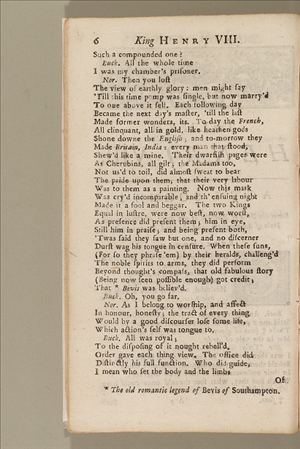 6 King HENRY VIII.
Such a compounded one?
Buck. All the whole time
I was my chamber's prisoner.
Nor. Then you lost
The view of earthly glory: men might say
'Till this time pomp was single, but now marry'd
To one above it self. Each following day
Became the next day's master, 'till the last
Made former wonders, its. To-day the French,
All clinquant, all in gold, like heathen gods
Shone downe the English; and to-morrow they
Made Britain, India: every man that stood,
Shew'd like a mine. Their dwarfish pages were
As Cherubins, all gilt; the Madams too,
Not us'd to toil, did almost sweat to bear
The pride upon them, that their very labour
Was to them as a painting. Now this mask
Was cry'd incomparable; and th' ensuing night
Made it a fool and beggar. The two Kings
Equal in lustre, were now best, now worst,
As presence did present them; him in eye,
Still him in praise; and being present both,
'Twas said they saw but one, and no discerner
Durst wag his tongue in censure. When these suns,
(For so they phrase 'em) by their heralds, challeng'd
The noble spirits to arms, they did perform
Beyond thought's compass, that old fabulous story
(Being now seen possible enough) got credit;
That * Bevis was believ'd.
Buck. Oh, you go far.
Nor. As I belong to worship, and affect
In honour, honesty; the tract of every thing
Would by a good discourser lose some life,
Which action's self was tongue to.
Buck. All was royal;
To the disposing of it nought rebell'd,
Order gave each thing view. The office did
Distinctly his full function. Who did guide,
I mean who set the body and the limbs
Of
* The old romantic legend of Bevis of Southampton.